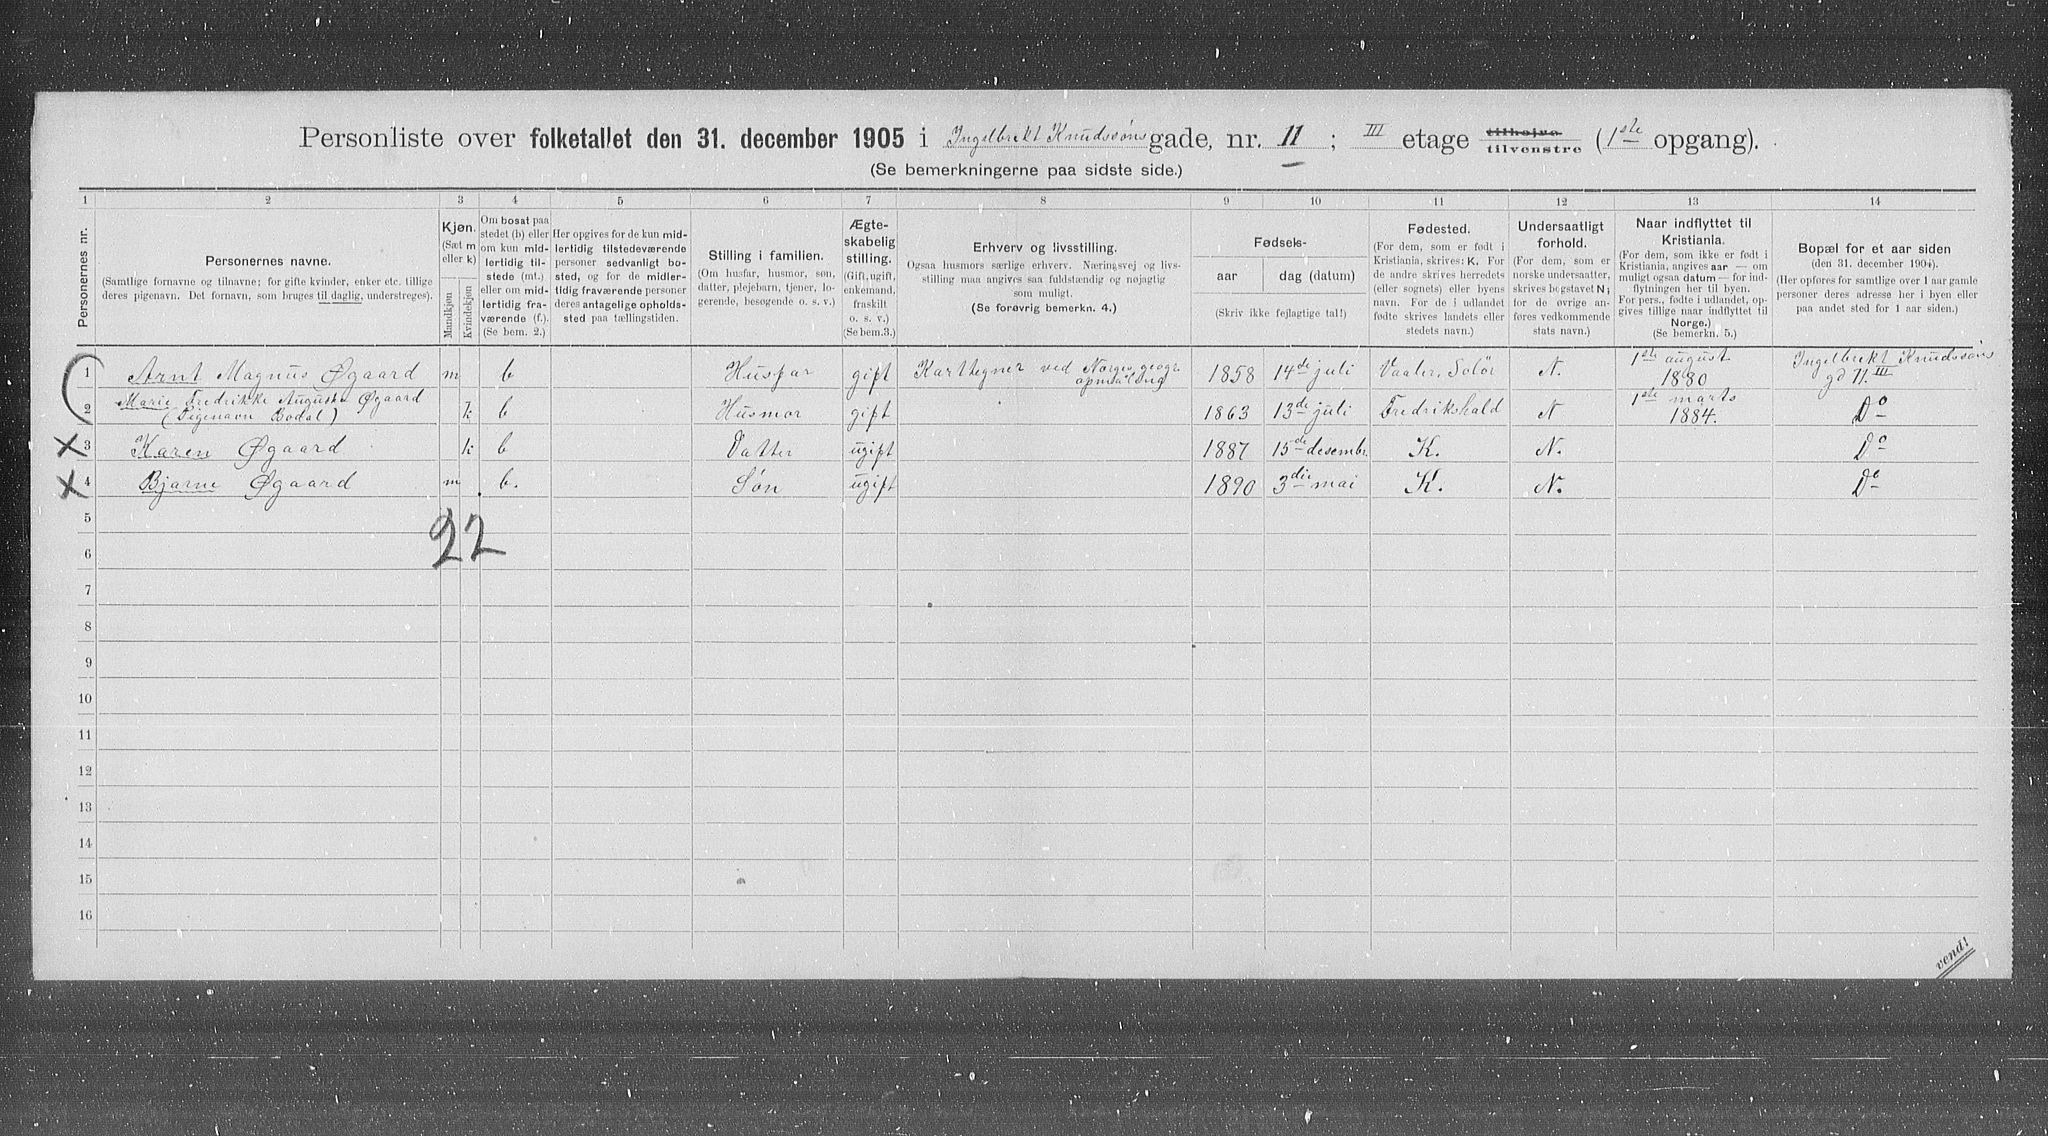 Personliste over folketallet den 31. december 1905 i Ingelbrekt Knudssøns gade, nr. 11 ; III etage tilhøjre tilvenstre (1ste opgang).
(Se bemerkningerne paa sidste side.)
1 2 3 4 5 6 7 8 9 10 11 12 13 14
Personernes nr.
Personernes navne.
(Samtlige fornavne og tilnavne; for gifte kvinder, enker etc. tillige
deres pigenavn. Det fornavn, som bruges til daglig, understreges).
Kjøn.
(Sæt m
eller k)
Mandkjøn
Kvindekjøn
Om bosat paa
stedet (b) eller
om kun mid-
lertidig til-
stede (mt.)
eller om mid-
lertidig fra-
værende (f.).
(Se bem. 2.)
Her opgives for de kun mid-
lertidig tilstedeværende
personer sedvanligt bo-
sted, og for de midler-
tidig fraværende personer
deres antagelige opholds-
sted paa tællingstiden.
Stilling i familien.
(Om husfar, husmor, søn,
datter, plejebarn, tjener, lo-
gerende, besøgende o. s. v.)
Ægte-
skabelig
stilling.
(Gift, ugift,
enkemand,
fraskilt
o. s. v.)
(Se bem.3.)
Erhverv og livsstilling.
Ogsaa husmors særlige erhverv. Næringsvej og livs-
stilling maa angives saa fuldstændig og nøjagtig
som muligt.
(Se forøvrig bemerkn. 4.)
Fødsels-
aar dag (datum)
(Skriv ikke fejlagtige tal!)
Fødested.
(For dem, som er født i
Kristiania, skrives: K. For
de andre skrives herredets
(eller sognets) eller byens
navn. For de i udlandet
fødte skrives landets eller
stedets navn.)
Undersaatligt
forhold.
(For dem, som er
norske undersaatter,
skrives bogstavet N;
for de øvrige an-
føres vedkommende
stats navn.)
Naar indflyttet til
Kristiania.
(For dem, som ikke er født i
Kristiania, angives aar — om
muligt ogsaa datum — for ind-
flytningen her til byen.
For pers., fødte i udlandet, op-
gives tillige naar indflyttet til
Norge.)
(Se bemerkn. 5.)
Bopæl for et aar siden
(den 31. december 1904).
(Her opføres for samtlige over 1 aar gamle
personer deres adresse her i byen eller
paa andet sted for 1 aar siden.)
1 Arnt Magnus Øgaard m b Husfar gift Karttegner ved Norges geogr. opmaaling 1858 14de juli Vaaler, Solør N. 1ste august 1880 Ingelbrekt Knudssøns gd 11.III
2 Marie Fredrikke Auguste Øgaard (Pigenavn Bodal) k b Husmor gift 1863 13de juli Fredrikshald N 1ste marts 1884. Do
X 3 Karen Øgaard k b Datter ugift 1887 15de desembr. K. N. Do
X 4 Bjarne Øgaard m b. Søn ugift 1890 3die mai K. N. Do
5
22
6
7
8
9
10
11
12
13
14
15
16
vend!